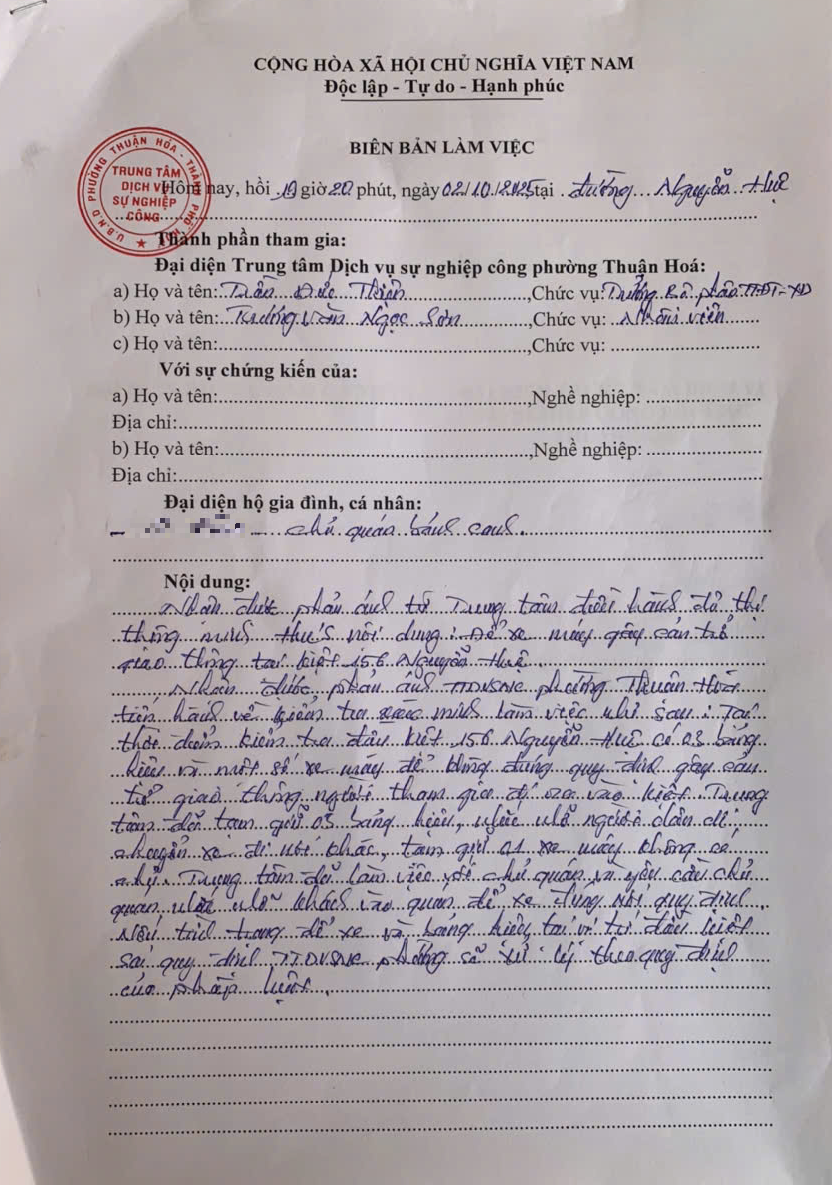 CỘNG HÒA XÃ HỘI CHỦ NGHĨA VIỆT NAM
Độc lập - Tự do - Hạnh phúc
BIÊN BẢN LÀM VIỆC
U.B.N.D PHƯỜNG THUẬN HÓA - THÀNH PHỐ
TRUNG TÂM
DỊCH VỤ
SỰ NGHIỆP
CÔNG
Hôm nay, hồi 19 giờ 20 phút, ngày 02/10/2025 tại đường Nguyễn Huệ
Thành phần tham gia:
Đại diện Trung tâm Dịch vụ sự nghiệp công phường Thuận Hoá:
a) Họ và tên: Trần Đức Thiện, Chức vụ: Trưởng Bộ phận TTĐT-XD
b) Họ và tên: Trương Văn Ngọc Sơn, Chức vụ: Nhân viên
c) Họ và tên:, Chức vụ :
Với sự chứng kiến của:
a) Họ và tên:, Nghề nghiệp:
Địa chỉ:
b) Họ và tên:, Nghề nghiệp:
Địa chỉ:
Đại diện hộ gia đình, cá nhân:
- chủ quán bánh canh
Nội dung:
Nhận được phản ánh từ Trung tâm điều hành đô thị
thông minh Huế nội dung: Để xe máy gây cản trở
giao thông tại kiệt 156 Nguyễn Huệ.
Nhận được phản ánh TTDVSNC phường Thuận Hóa
tiến hành về kiểm tra xác minh làm việc như sau: Tại
thời điểm kiểm tra đầu kiệt 156 Nguyễn Huệ có 03 bảng
hiệu và một số xe máy để không đúng quy định gây cản
trở giao thông người tham gia đi ra vào kiệt. Trung
tâm đã tạm giữ 03 bảng hiệu, nhắc nhở người dân di
chuyển xe đi nơi khác, tạm giữ 01 xe máy không có
chủ. Trung tâm đã làm việc với chủ quán và yêu cầu chủ
quán nhắc nhở khách vào quán để xe đúng nơi quy định.
Nếu tình trạng để xe và bảng hiệu tại vị trí đầu kiệt
sai quy định TTDVSNC phường sẽ xử lý theo quy định
của pháp luật.